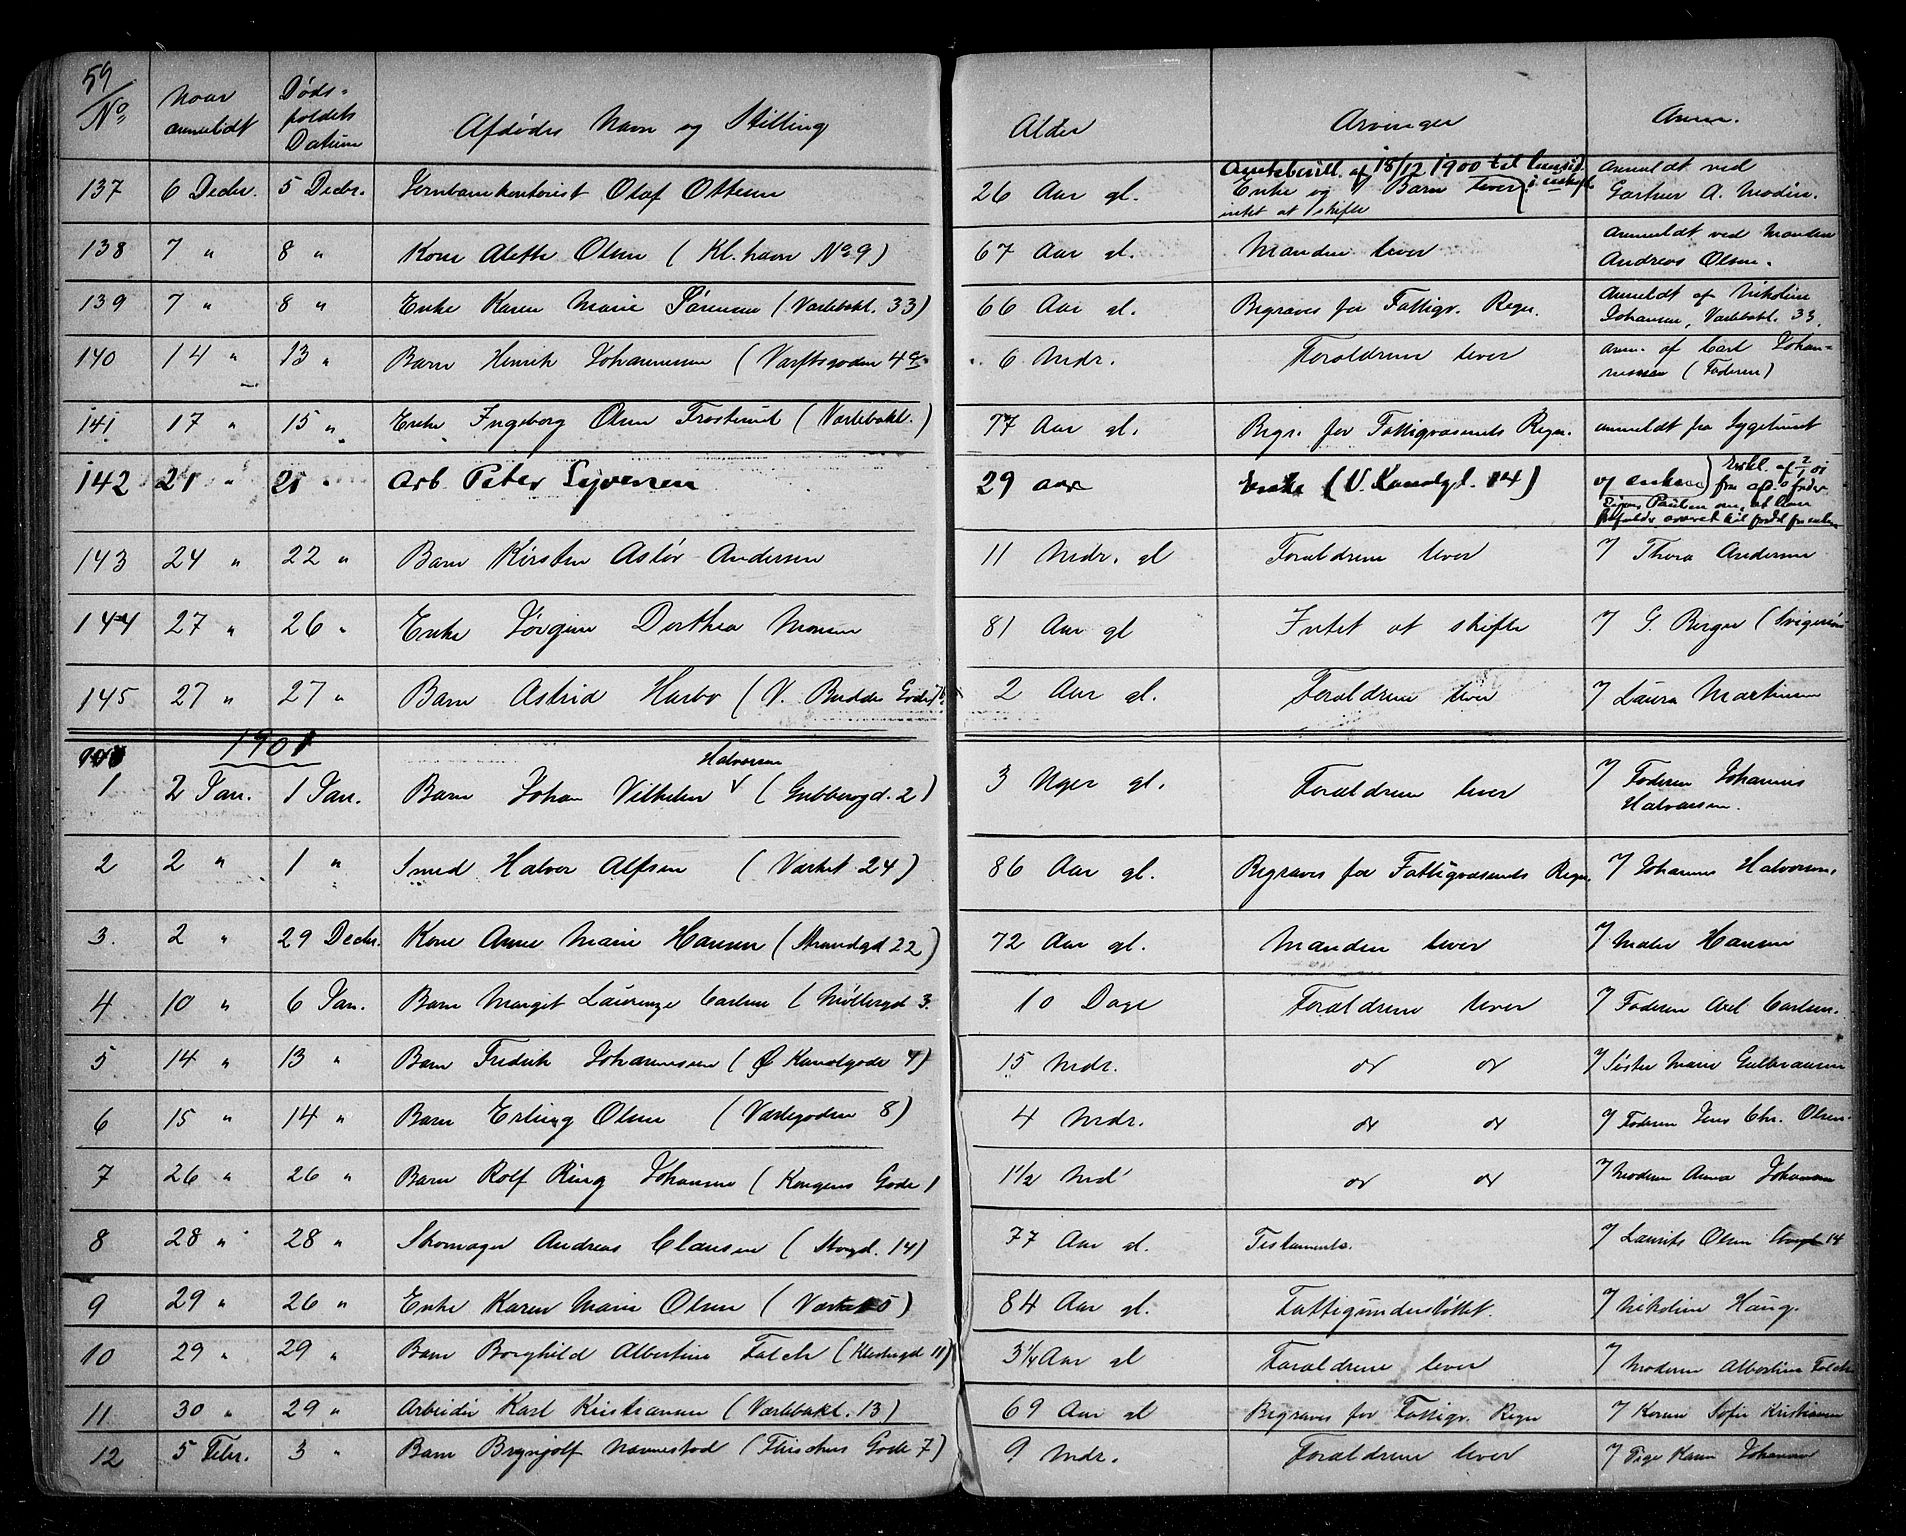 59
No Naar anmeldt Døds-foldets Datum Afdødes Navn og Stilling Alder Arvinger Anm.
137 6 Decbr. 5 Decbr. Jernbanekontorist Olaf Ottesen 26 Aar gl. Amtsbevill. af 18/12 1900 til Enke og Barn lever intet at skifte Anmeldt ved Gartner A. Modin.
138 7 " 8 " Kone Alette Olsen (Kl. havn No 9) 67 Aar gl. Manden lever Anmeldt ved Manden Andreas Olsen.
139 7 " 8 " Enke Karen Marie Sørensen (Værlebakt. 33) 66 Aar gl. Begraves for Fattigv. Regn. Anmeldt af Nikoline Johansen, Værlebakt. 33.
140 14 " 13 " Barn Henrik Johannessen (Værftsgaden 4 6 Mdr. Forældrene lever anm. af Carl Johan-nessen (Faderen)
141 17 " 15 " Enke Ingeborg Olsen Frosterud (Værlebakt.) 77 Aar gl. Begr. for Fattigvæsenets Regn. anmeldt fra Sygehuset
142 21 " 21 " Arb. Peter Syversen 29 aar Enke (V. Kanalgt. 14) og enken Erkl. af 2/1 01 fra afd.s fader Paulsen om, at han frafalder arvet til fordel for enken
143 24 " 22 " Barn Kirsten Astør Andersen 11 Mdr. gl Forældrene lever 7 Thora Andersen
144 27 " 26 " Enke Jørgine Dorthea Monsen 81 Aar gl Intet at skifte 7 G. Berger (Svigersøn
145 27 " 27 " Barn Astrid Harbo (V. Budde Gade 2 Aar gl. Forældrene lever 7 Laura Martinsen
1901
1 2 Jan. 1 Jan. Barn Johan Vilhelm Halvorsen (Gubbergd. 2) 3 Uger gl. Forældrene lever 7 Faderen Johannes Halvorsen.
2 2 " 1 " Smed Halvor Alfsen (Værket 24) 86 Aar gl. Begraves for Fattigvæsenets Regn. 7 Johannes Halvorsen.
3. 2 " 29 Decbr. Kone Anne Marie Hansen (Strandgd 22) 72 Aar gl. Manden lever 7 Maler Hansen
4 10 " 6 Jan. Barn Margit Laurenze Carlsen (Møllergd 3. 10 Dage Forældrene lever 7 Faderen Axel Carlsen.
5 14 " 13 " Barn Fredrik Johannessen (Ø Kanalgade 4) 15 Mdr. do do 7 Søster Marie Gulbransen
6 15 " 14 " Barn Erling Olsen (Værlegaden 8) 4 Mdr. do do 7 Faderen Jens Chr. Olsen.
7 26 " 26 " Barn Rolf Ring Johansen (Kongens Gade 1 1 1/2 Md do do 7 Moderen Anna Johansen
8 28 " 28 " Skomager Andreas Clausen (Storgd. 14) 77 Aar gl. Testamente. 7 Laurits Olsen Storgd 14
9 29 " 26 " Enke Karen Marie Olsen (Værket 5) 84 Aar gl. Fattigunderstøttet. 7 Nikoline Haug.
10 29 " 29 " Barn Borghild Albertine Falch (Klostergd 11) 3 1/4 Aar gl Forældrene lever 7 Moderen Albertine Falch
11 30 " 29 " Arbeider Karl Kristiansen (Værlebakt. 13) 69 Aar gl Begraves for Fattigv. Regn 7 Konen Sofie Kristiansen
12 5 Febr. 3 " Barn Brynjolf Navnestad (Thischens Gade 7) 9 Mdr. Forældrene lever 7 Pige Karen Johansen